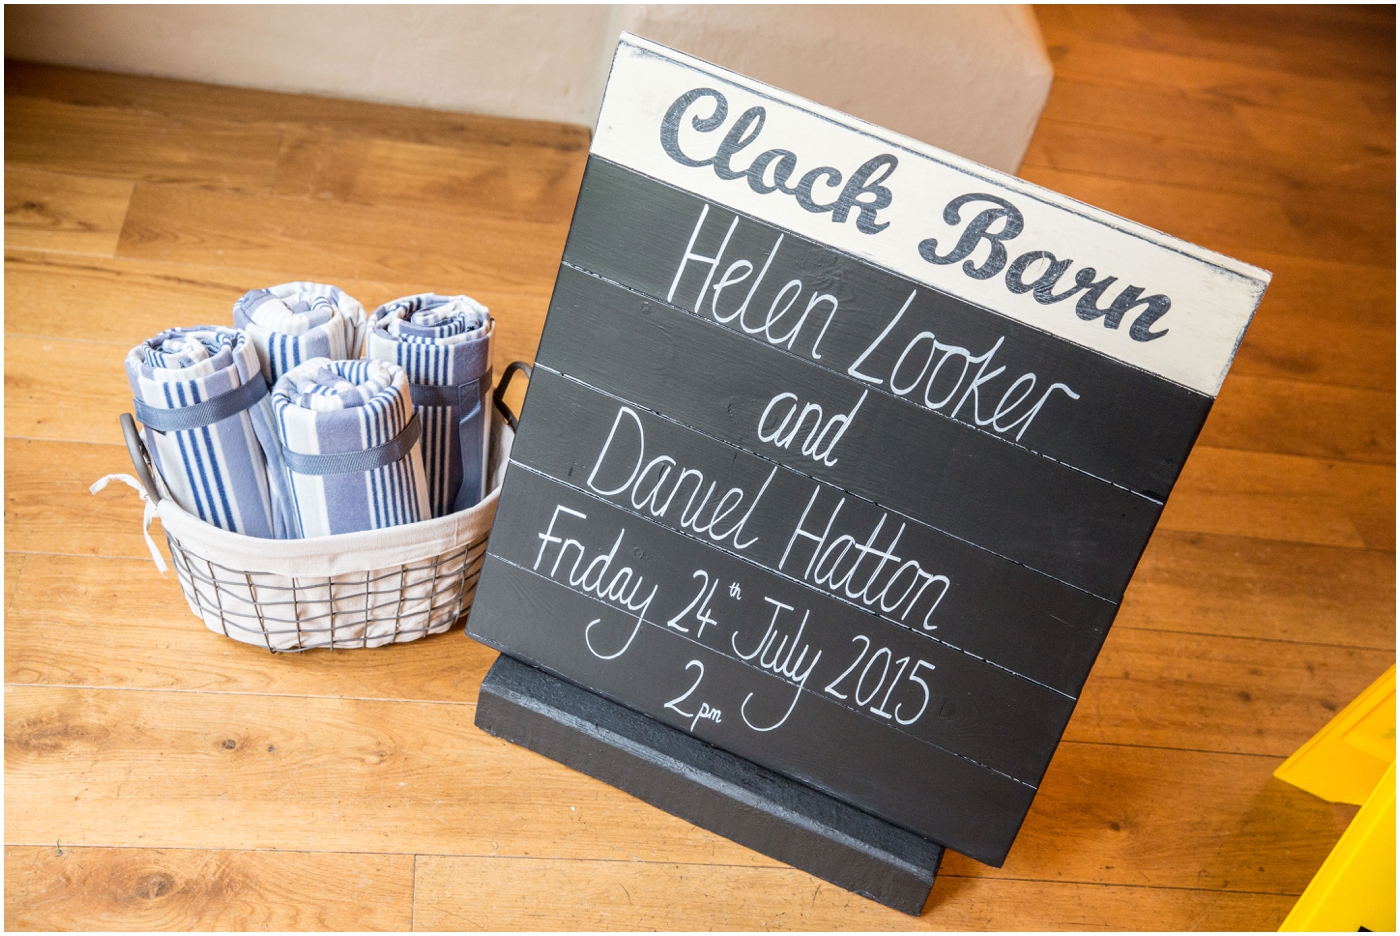 Clock Barn
Helen Looker
and
Daniel Hatton
Friday 24th July 2015
2pm